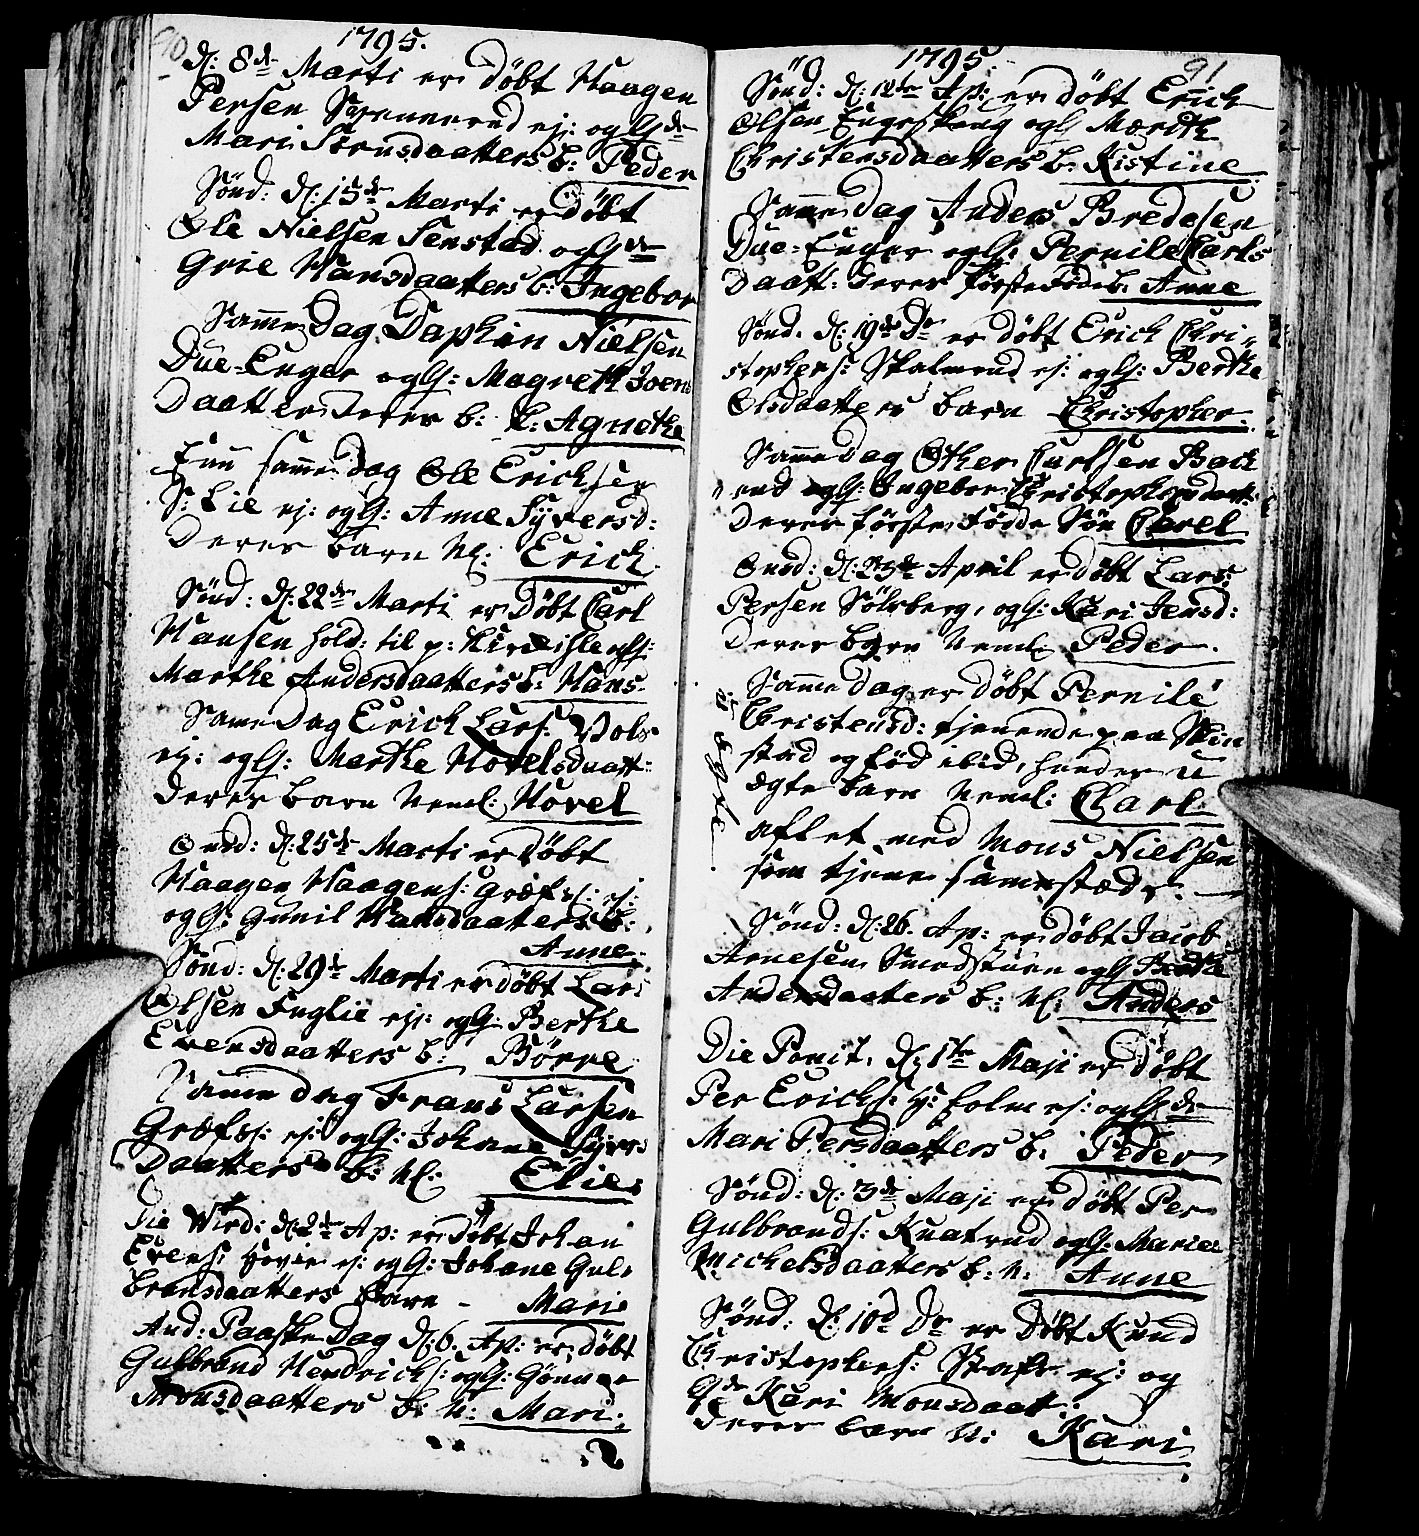 90
1795.
d: 8de Marti er døbt Haagen
Persen ej: og Gde
Mari Steensdaatters b: Peder
Sönd: d: 15de Marti er døbt
Ole Nielsen Senstad og Gde
Grie Hansdaatters b: Ingebor
Samme Dag Daphin Nielsen
Due-Enger og G: Magreth Joens
Daatter Deres b: N: Agnethe
Enn samme dag Ole Erichsen
S: Lie ej: og G: Anne Syversd:
Deres barn Nl: Erich
Sönd: d: 22de Marti er Døbt Carl
Hansen hold: til p: og G:
Marthe Andersdaatters b: Hans
Same Dag Erich Lars: Vols
ej: og G: Marthe Hovelsdaatt:
Deres barn Neml: Hovel
Onsd: d: 25de Marti er Døbt
Haagen Haagens: Græfs: ej:
og G: Gunil Hansdaatters b:
Anne
Sönd: d: 29de Marti er døbt Lars
Olsen Fuglie ej: og G: Berthe
Evensdaatters b: Börre
Samme dag Frans Larsen
Græfs: ej: og G: Johane Syvers
Daatters b: Nl: Elies
Die Vird: d: 2de Ap: er Døbt Johan
Evens: ej: og G: Johane Gul
bransdaatters barn - Marie
And: Paaske Dag d: 6. Ap: er døbt
Gulbrand Hendrichs: og G: Gönner
Monsdaatters b: N: Mari.
1795.
91
Sönd: d: 12te Ap: er døbt Erich
Olsen Engeskoug og G: Marith
Christensdaatters b: Kistine
Samme dag Anders Bredesen
Due-Enger og G: Pernile Carls
Daatt: Deres förstefödde b: Anne
Sönd. d: 19de Do er døbt Erich Chri-
stophers: Skalmrud ej: og G: Berthe
Olsdaatters barn Christopher.
Samme dag Other Carlsen Back
rud og G: Ingebor Christophersdaatt:
Deres förste Födde Sön Carel
Onsd: d: 23de April er døbt Lars
Persen Sölvberg, og G: Kari Jensd:
Deres barn Neml: Peder.
Samme dag er døbt Pernile
Christensd: tjenende paa Skin
stad og föd ibid, hendes u
ægte barn Neml: Carl
aflet med Mons Nielsen
som tjener sammestæds.
u ægte
Sönd: d: 26. Ap: er døbt Jacob
Arnesen Smedstuen og G: Berthe
Andersdaatters b: Nl: Anders
Die Ponit. d: 1te Maji er døbt
Per Erichs: S: Holm ej: og Gde
Mari Persdaatters b. Peder
Sönd: d: 3de Maji er døbt Per
Gulbrands: Knatrud og G: Marie
Michelsdaatters b: N: Anne
Sönd: d: 10d Do er Døbt Knud
Christophers: ej: og
Gde Kari Monsdaatt:
Deres barn N: Kari